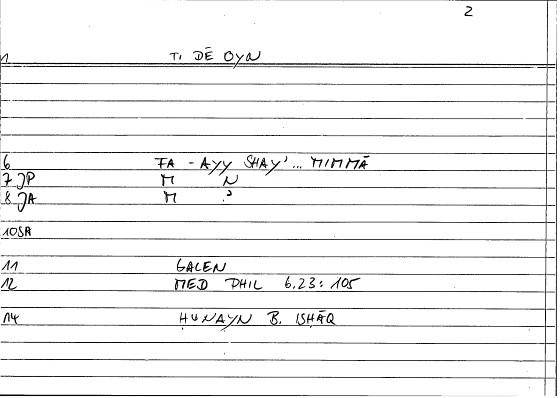 2
1 TI DĒ OYN
6 FA - AYY SHAY' ... MIMMĀ
7 JP M N
8 JA M ?
10 SA
11 GALEN
12 MED PHIL 6.23: 105
14 ḤUNAYN B. ISḤĀQ